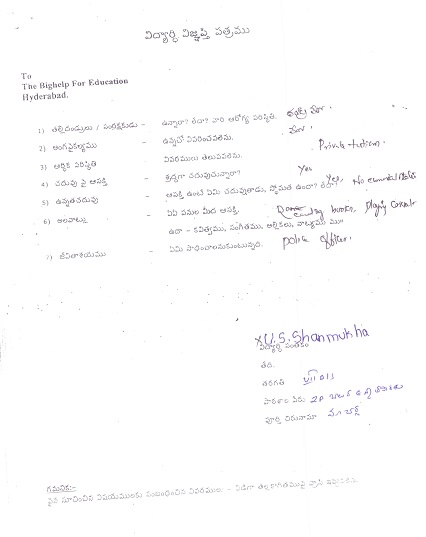 విద్యార్థి విజ్ఞప్తి పత్రము
To
The Bighelp For Education
Hyderabad.
1) తల్లిదండ్రులు / సంరక్షకుడు - ఉన్నారా? లేదా? వారి ఆరోగ్య పరిస్థితి.
2) అంగవైకల్యము - ఉన్నచో వివరించవలెను.
3) ఆర్థిక పరిస్థితి - వివరములు తెలుపవలెను. Private
4) చదువు పై ఆసక్తి - శ్రద్ధగా చదువుచున్నారా? Yes
5) ఉన్నతచదువు - ఆసక్తి ఉంటే ఏమి చదువుతాడు, స్తోమత ఉందా? లేదా? Yes No
6) అలవాట్లు - ఏఏ పనుల మీద ఆసక్తి. books, playing
ఉదా - కవిత్వము, సంగీతము, అల్లికలు, నాట్యము
7) జీవితాశయము - ఏమి సాధించాలనుకుంటున్నది. police officer.
x U.S. Shanmukha
విద్యార్థి సంతకం
తేది.
తరగతి VIII
పాఠశాల పేరు
పూర్తి చిరునామా
గమనిక:-
పైన సూచించిన విషయములకు సంబంధించిన వివరములు - విడిగా తెల్లకాగితముపై వ్రాసి